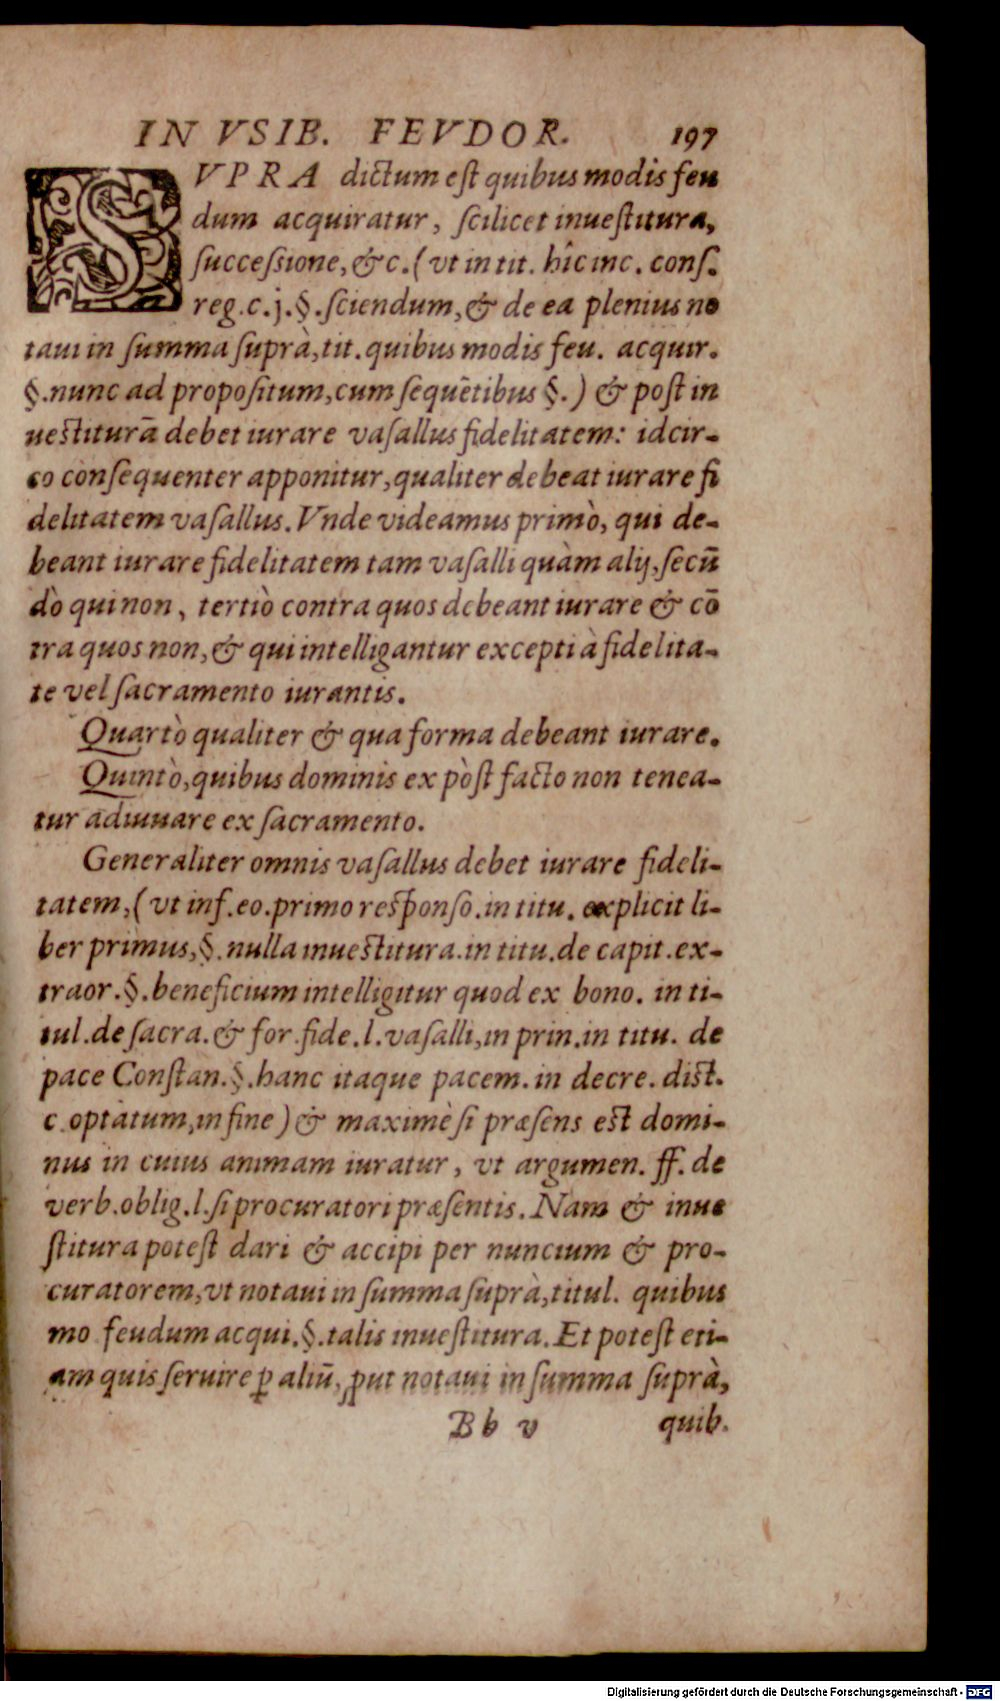 IN VSIB. FEVDOR. 197
SVPRA dictum eſt quibus modis feu
dum acquiratur, ſcilicet inueſtitura,
ſucceſsione, &c. (vt in tit. hîc inc. conſ.
reg. c. j. §. ſciendum, & de ea plenius no
taui in ſumma ſuprà, tit. quibus modis feu. acquir.
§. nunc ad propoſitum, cum ſequẽtibus §.) & poſt in
ueſtiturã debet iurare vaſallus fidelitatem: idcir-
co conſequenter apponitur, qualiter debeat iurare fi
delitatem vaſallus. Vnde videamus primò, qui de-
beant iurare fidelitatem tam vaſalli quàm alij, ſecũ
dò qui non, tertiò contra quos debeant iurare & cõ
tra quos non, & qui intelligantur excepti à fidelita-
te vel ſacramento iurantis.
Quartò qualiter & qua forma debeant iurare.
Quintò, quibus dominis ex pòſt facto non tenea-
tur adiuuare ex ſacramento.
Generaliter omnis vaſallus debet iurare fideli-
tatem, (vt inf. eo. primo reſponſo. in titu. explicit li-
ber primus, §. nulla inueſtitura. in titu. de capit. ex-
traor. §. beneficium intelligitur quod ex bono. in ti-
tul. de ſacra. & for. fide. l. vaſalli, in prin. in titu. de
pace Conſtan. §. hanc itaque pacem. in decre. diſt.
c. optatum, in fine) & maximè ſi præſens eſt domi-
nus in cuius animam iuratur, vt argumen. ff. de
verb. oblig. l. ſi procuratori præſentis. Nam & inue
ſtitura poteſt dari & accipi per nuncium & pro-
curatorem, vt notaui in ſumma ſuprà, titul. quibus
mo feudum acqui. §. talis inueſtitura. Et poteſt eti-
am quis ſeruire ꝑ aliũ, ꝓut notaui in ſumma ſuprà,
Bb v quib.
Digitalisierung gefördert durch die Deutsche Forschungsgemeinschaft - DFG